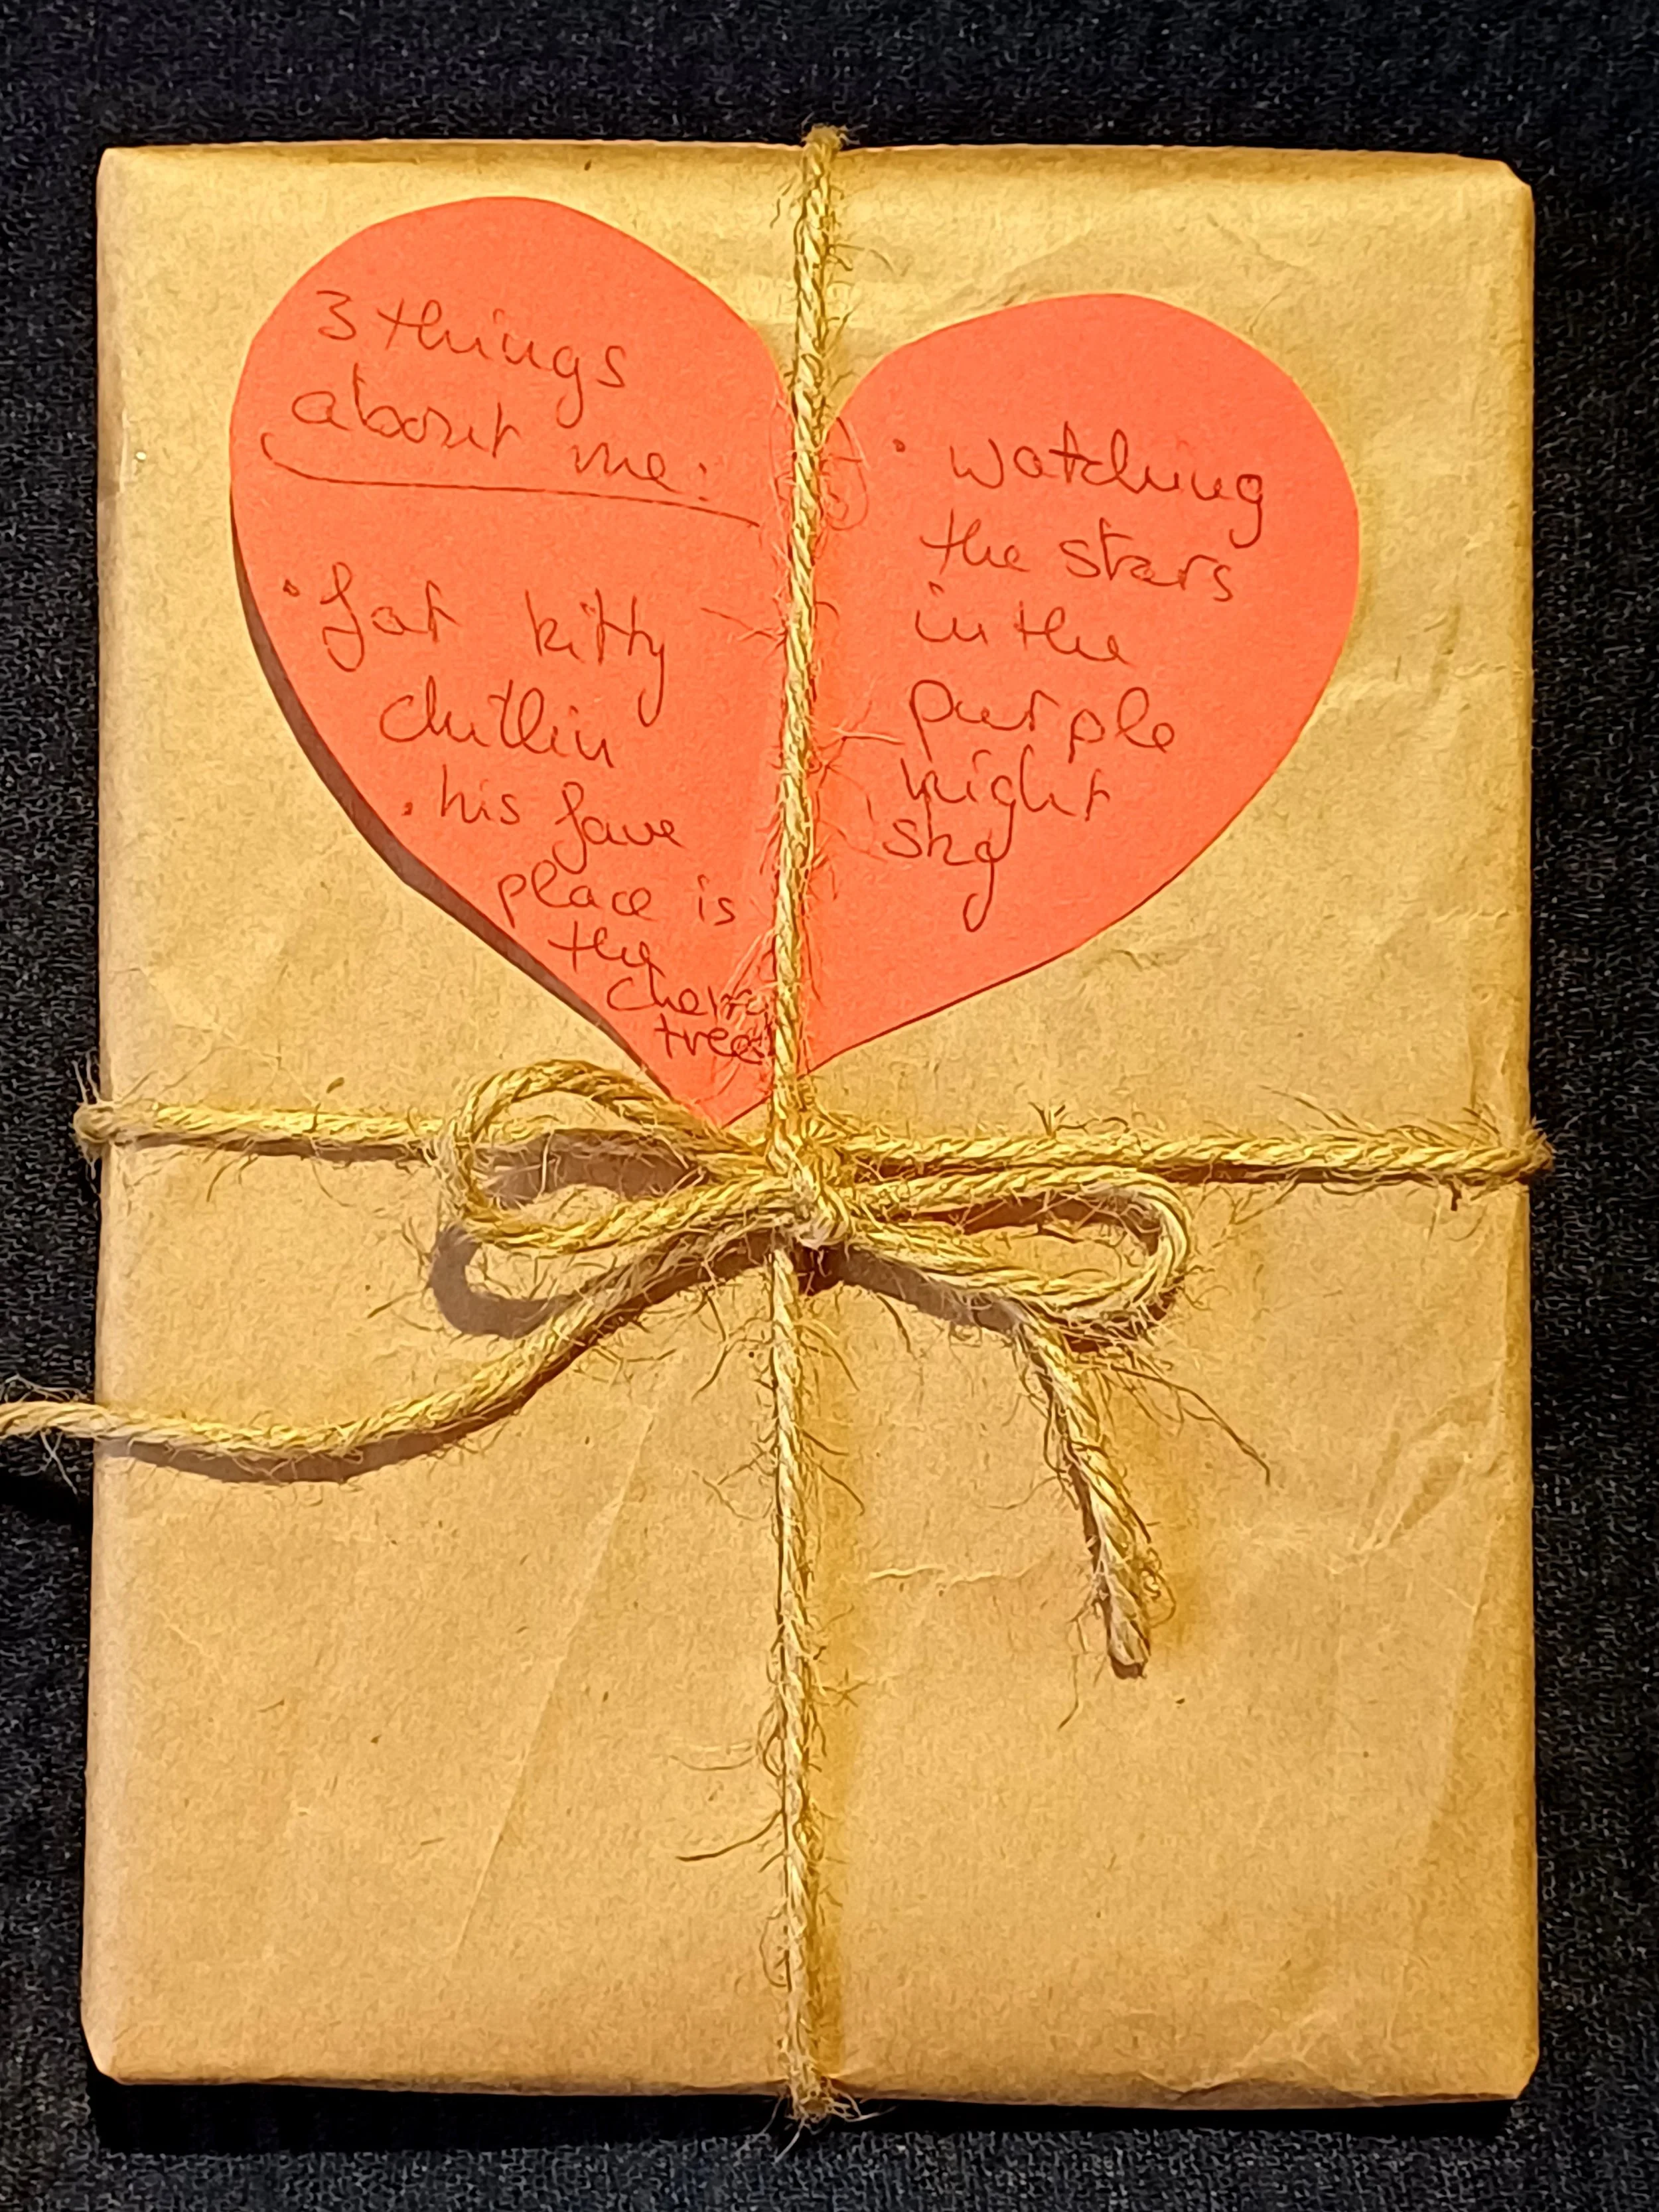 3 things
about me:
· fat kitty
chitlin
· his fave
place is
the
cherry
tree
· watching
the stars
in the
purple
night
sky